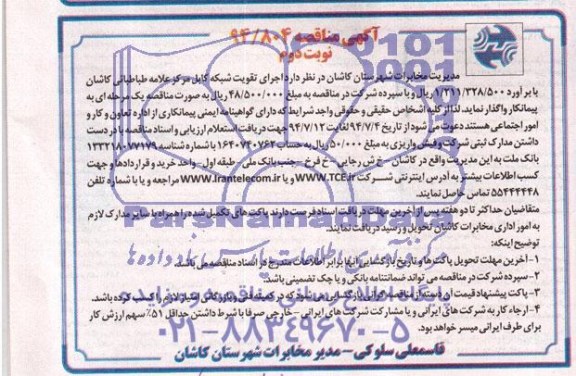 آگهی مناقصه ۹۴/۸۰۴
نوبت دوم
مدیریت مخابرات شهرستان کاشان در نظر دارد اجرای تقویت شبکه کابل مرکز علامه طباطبائی کاشان
با برآورد ۱/۲۱۱/۳۲۸/۵۰۰ ریال و با سپرده شرکت در مناقصه به مبلغ ۴۸/۵۰۰/۰۰۰ ریال به صورت مناقصه یک مرحله ای به
پیمانکار واگذار نماید. لذا از کلیه اشخاص حقیقی و حقوقی واجد شرایط که دارای گواهینامه ایمنی پیمانکاری از اداره تعاون و کار و
امور اجتماعی هستند دعوت می شود از تاریخ ۹۴/۷/۴ لغایت ۹۴/۷/۱۲ جهت دریافت استعلام ارزیابی و اسناد مناقصه با در دست
داشتن مدارک ثبتی شرکت و فیش واریزی به مبلغ ۵۰/۰۰۰ ریال به حساب ۱۶۴۰۷۴۰۷۶۲ با شناسه ۱۳۳۲۱۸۰۷۷۱۷۹
بانک ملت به این مدیریت واقع در کاشان - خ ش رجایی - خ فرخ - جنب بانک ملی - طبقه اول - واحد خرید و قراردادها و جهت
کسب اطلاعات بیشتر به آدرس اینترنتی شرکت WWW.TCE.ir و یا WWW.Irantelecom.ir مراجعه و یا با شماره تلفن
۵۵۴۴۴۴۴۸ تماس حاصل نمایند.
متقاضیان حداکثر تا دو هفته پس از آخرین مهلت دریافت اسناد فرصت دارند پاکت های تکمیل شده را همراه با سایر مدارک لازم
به امور اداری مخابرات کاشان تحویل و رسید دریافت نمایند.
توضیح اینکه:
۱- آخرین مهلت تحویل پاکت ها و تاریخ بازگشایی آنها برابر اطلاعات مندرج در اسناد مناقصه می باشد.
۲- سپرده شرکت در مناقصه می تواند ضمانتنامه بانکی و یا چک تضمینی باشد.
۳- پاکت پیشنهاد قیمت آن دسته از مناقصه گران بازگشایی می شود که در کمیته فنی و بازرگانی امتیاز لازم را کسب کرده باشد.
۴- ارجاء کار به شرکت های ایرانی و یا مشارکت شرکت های ایرانی - خارجی صرفا با شرط داشتن حداقل ۵۱٪ سهم ارزش کار
برای طرف ایرانی میسر خواهد بود.
قاسمعلی سلوکی - مدیر مخابرات شهرستان کاشان
ParsNamadData
۰۲۱-۸۸۳۴۹۶۷۰-۵